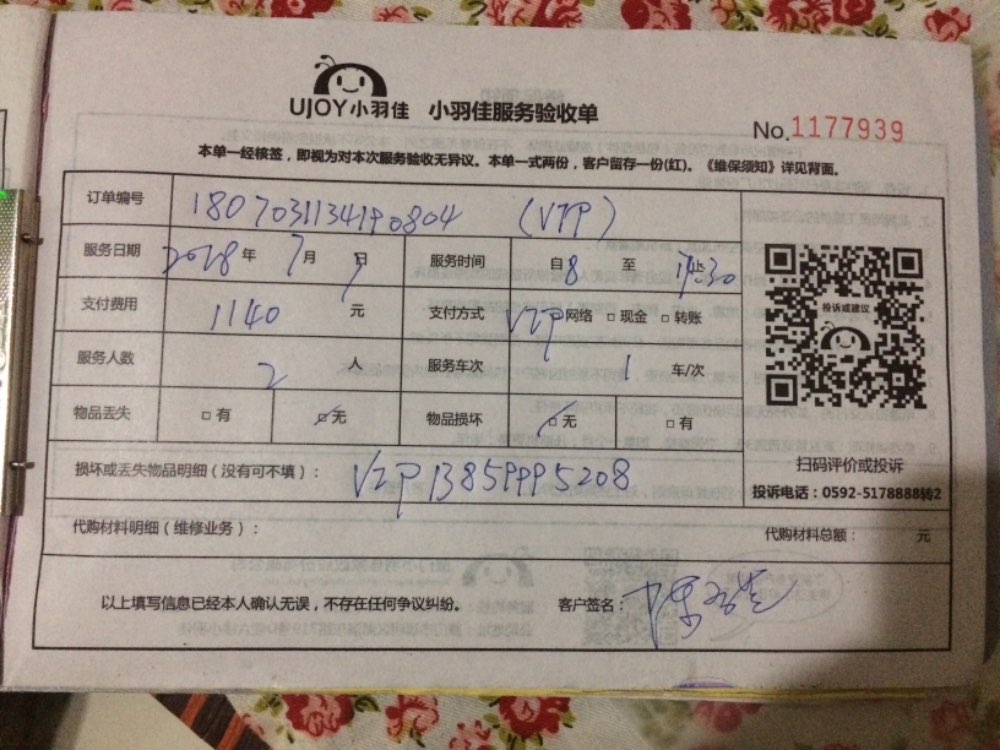 UJOY小羽佳 小羽佳服务验收单
No.1177939
本单一经核签，即视为对本次服务验收无异议。本单一式两份，客户留存一份(红)。《维保须知》详见背面。
订单编号 1807031134190804 (VIP)
服务日期 2018年 7月 9日 服务时间 自8 至 17止:30
支付费用 1140 元 支付方式 VIP 网络 □ 现金 □ 转账
服务人数 2 人 服务车次 1 车/次
物品丢失 □ 有 □ 无 物品损坏 □ 无 □ 有
投诉或建议
扫码评价或投诉
投诉电话：0592-5178888转2
损坏或丢失物品明细（没有可不填）： VIP 13859995208
代购材料明细（维修业务）： 代购材料总额： 元
以上填写信息已经本人确认无误，不存在任何争议纠纷。 客户签名：